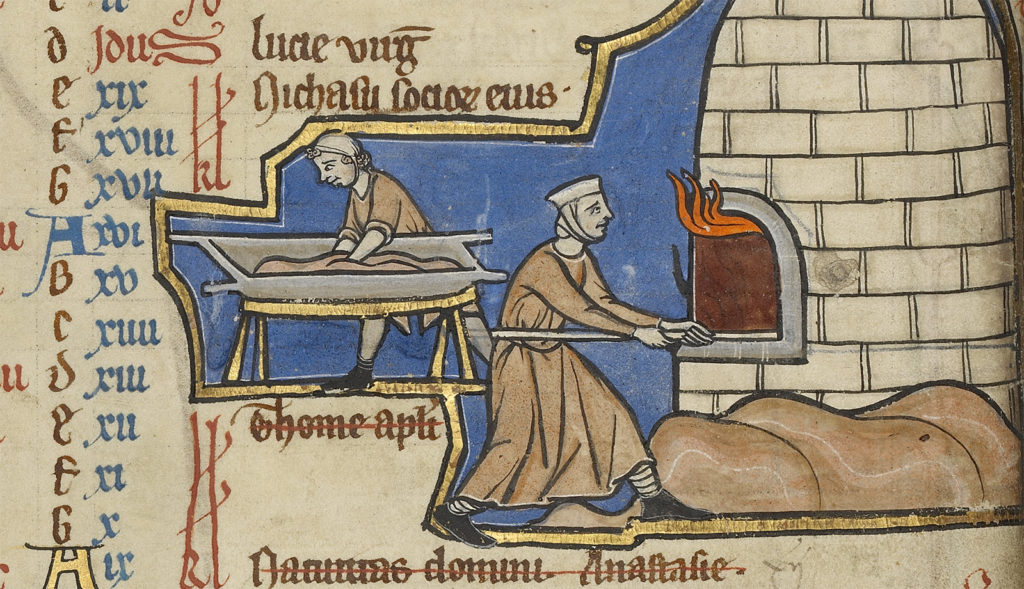 d Idus lucie virg̅
e xix Nichasii socioꝝ eius.
f xviii
G xvii kl
A xvi
B xv
c xiiii
d xiii
e xii Thome apl̅i
f xi
G x
A ix kl Natiuitas domini. Anastasie.